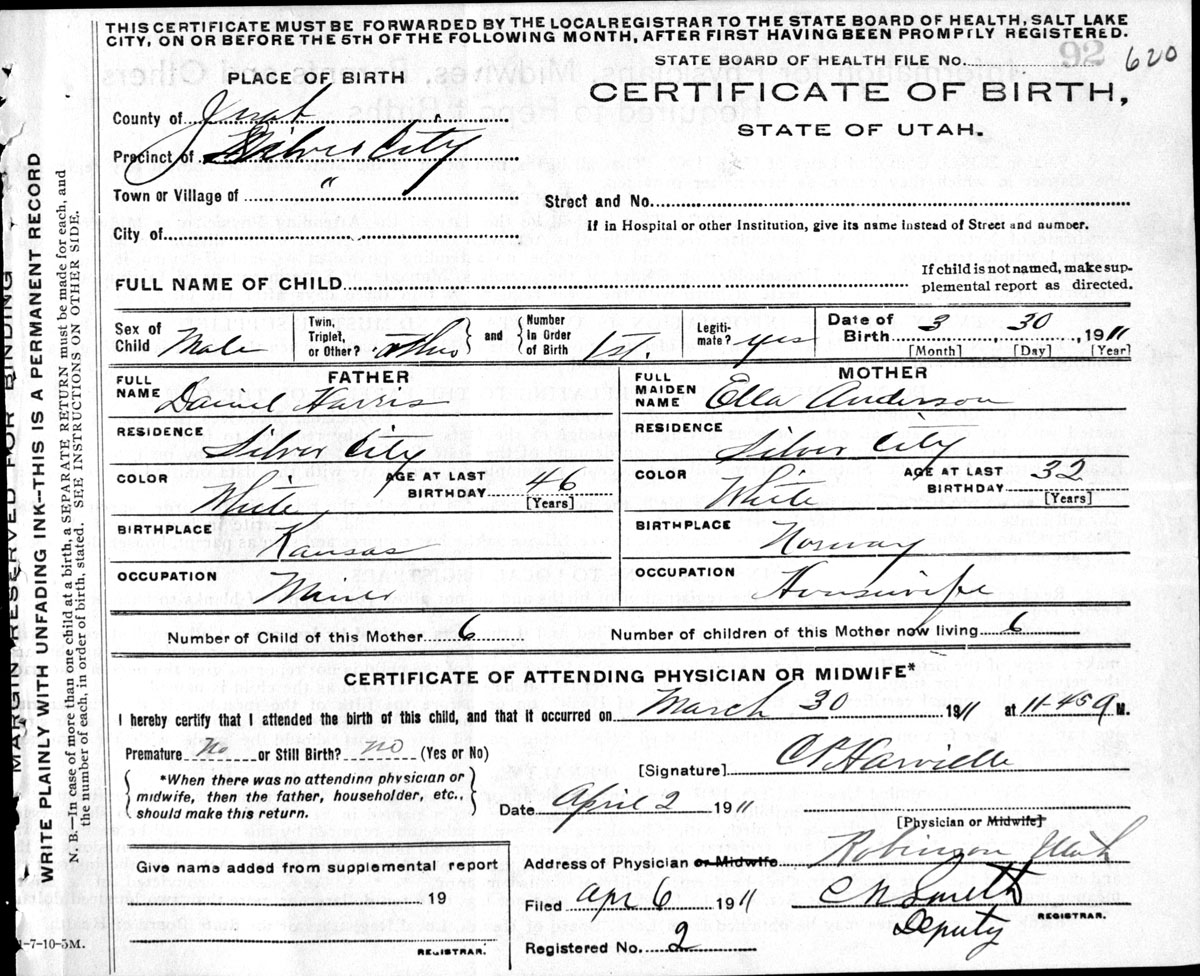 THIS CERTIFICATE MUST BE FORWARDED BY THE LOCAL REGISTRAR TO THE STATE BOARD OF HEALTH, SALT LAKE
CITY, ON OR BEFORE THE 5TH OF THE FOLLOWING MONTH, AFTER FIRST HAVING BEEN PROMPTLY REGISTERED.
STATE BOARD OF HEALTH FILE No. 92 620
PLACE OF BIRTH
CERTIFICATE OF BIRTH,
STATE OF UTAH.
County of Juab
Precinct of Silver City
Town or Village of "
Street and No.
City of
If in Hospital or other Institution, give its name instead of Street and number.
FULL NAME OF CHILD
If child is not named, make sup-
plemental report as directed.
Sex of Child Male
Twin, Triplet, or Other? and Number In Order of Birth 1st.
Legiti-mate? yes
Date of Birth 3 30 1911
[Month] [Day] [Year]
FATHER
FULL NAME Daniel Harris
RESIDENCE Silver City
COLOR White AGE AT LAST BIRTHDAY 46 [Years]
BIRTHPLACE Kansas
OCCUPATION Miner
MOTHER
FULL MAIDEN NAME Ella Anderson
RESIDENCE Silver City
COLOR White AGE AT LAST BIRTHDAY 32 [Years]
BIRTHPLACE Norway
OCCUPATION Housewife
Number of Child of this Mother 6 Number of children of this Mother now living 6
CERTIFICATE OF ATTENDING PHYSICIAN OR MIDWIFE*
I hereby certify that I attended the birth of this child, and that it occurred on March 30 1911 at 11-45 a M.
Premature no or Still Birth? no (Yes or No)
*When there was no attending physician or
midwife, then the father, householder, etc.,
should make this return.
[Signature]
Date April 2 1911
[Physician or Midwife]
Give name added from supplemental report
19
REGISTRAR.
Address of Physician or Midwife Robinson Utah
Filed Apr 6 1911 Smith
Deputy REGISTRAR.
Registered No. 2
1-7-10-5M.
MARGIN RESERVED FOR BINDING
WRITE PLAINLY WITH UNFADING INK--THIS IS A PERMANENT RECORD
N. B.—In case of more than one child at birth, a SEPARATE RETURN must be made for each, and
the number of each, in order of birth, stated. SEE INSTRUCTION ON OTHER SIDE.